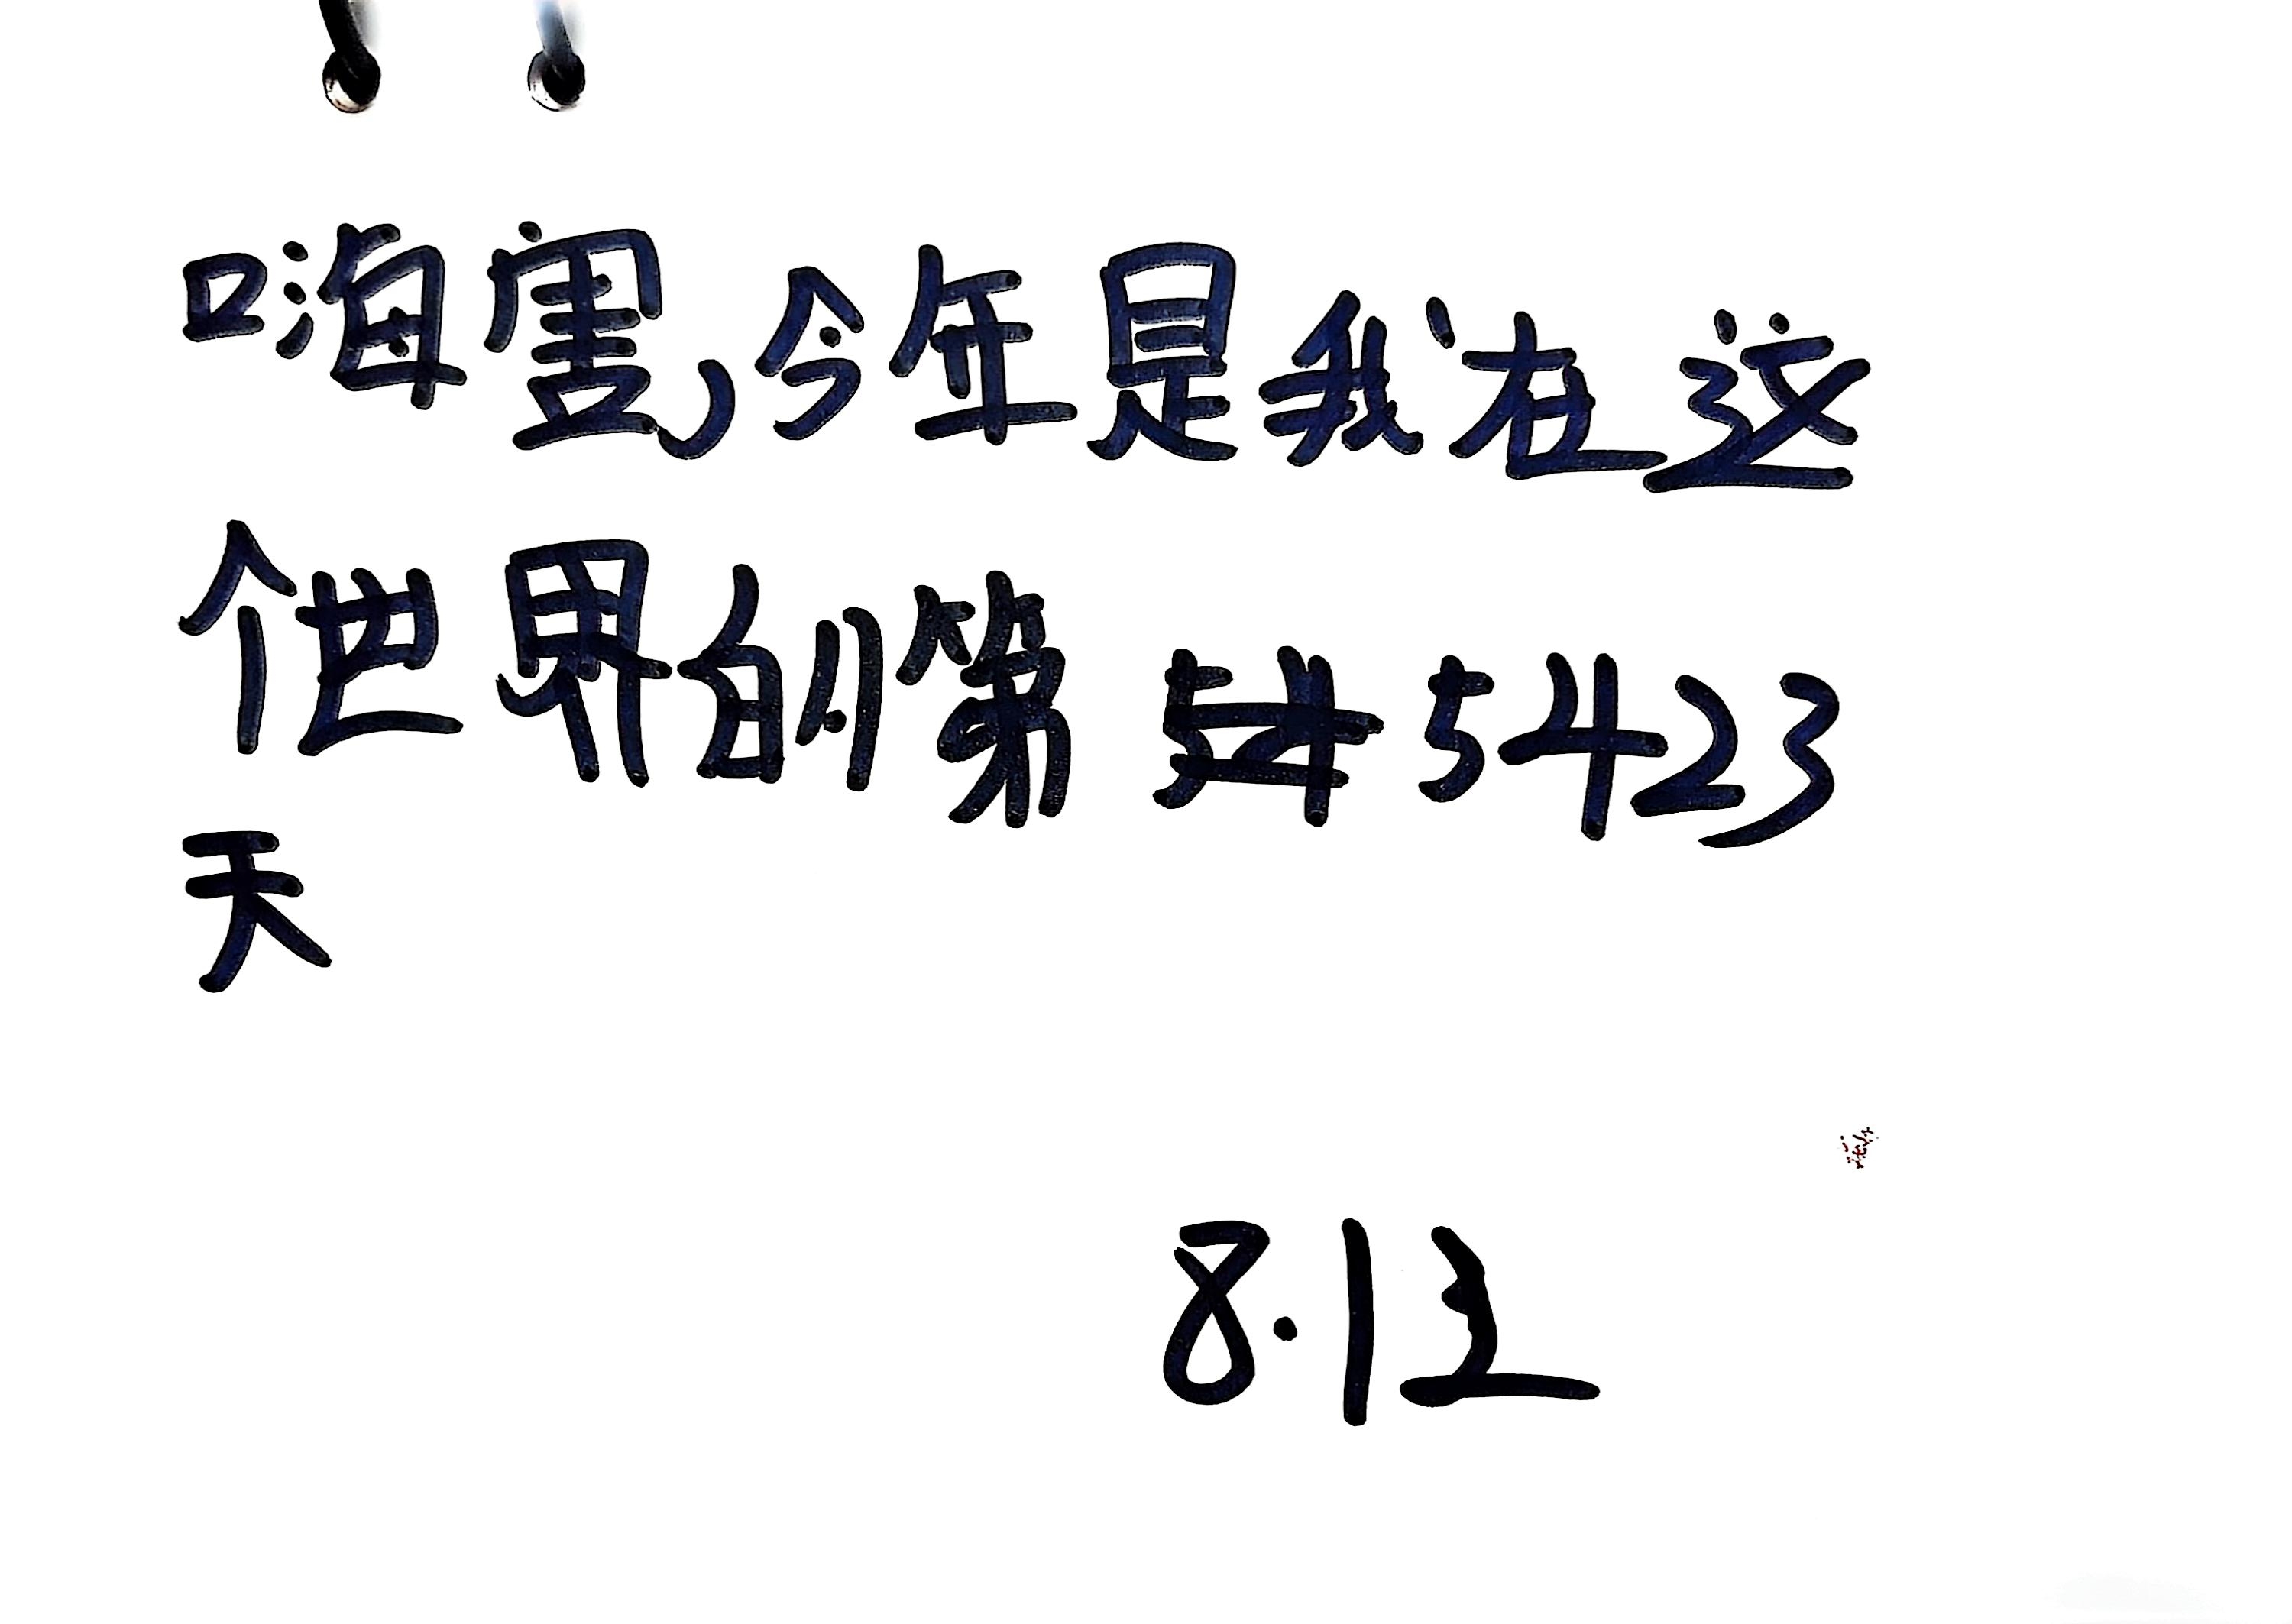 嗨害,今年是我在这
个世界的第 5423
天
8.12